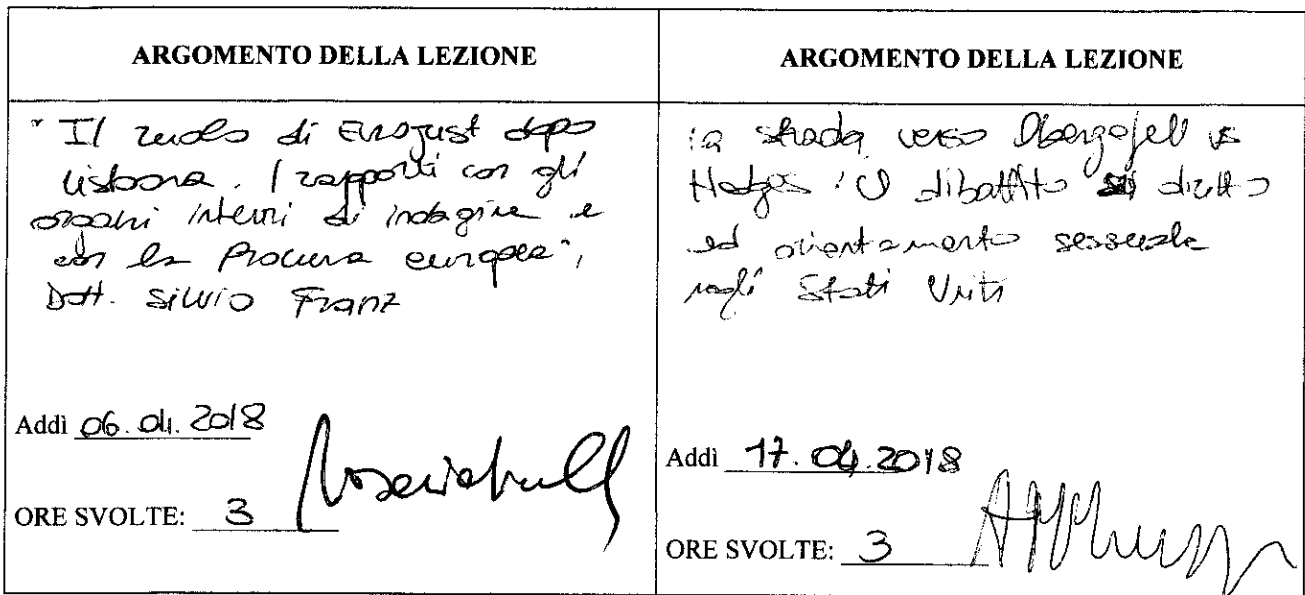 ARGOMENTO DELLA LEZIONE
"Il ruolo di Eurojust dopo
Lisbona. I rapporti con gli
organi interni di indagine e
con la Procura europea",
Dott. Silvio Franz
Addì 06.04.2018
ORE SVOLTE: 3
ARGOMENTO DELLA LEZIONE
la strada verso Obergefell vs
Hodges: il dibattito su diritto
ed orientamento sessuale
negli Stati Uniti
Addì 17.04.2018
ORE SVOLTE: 3